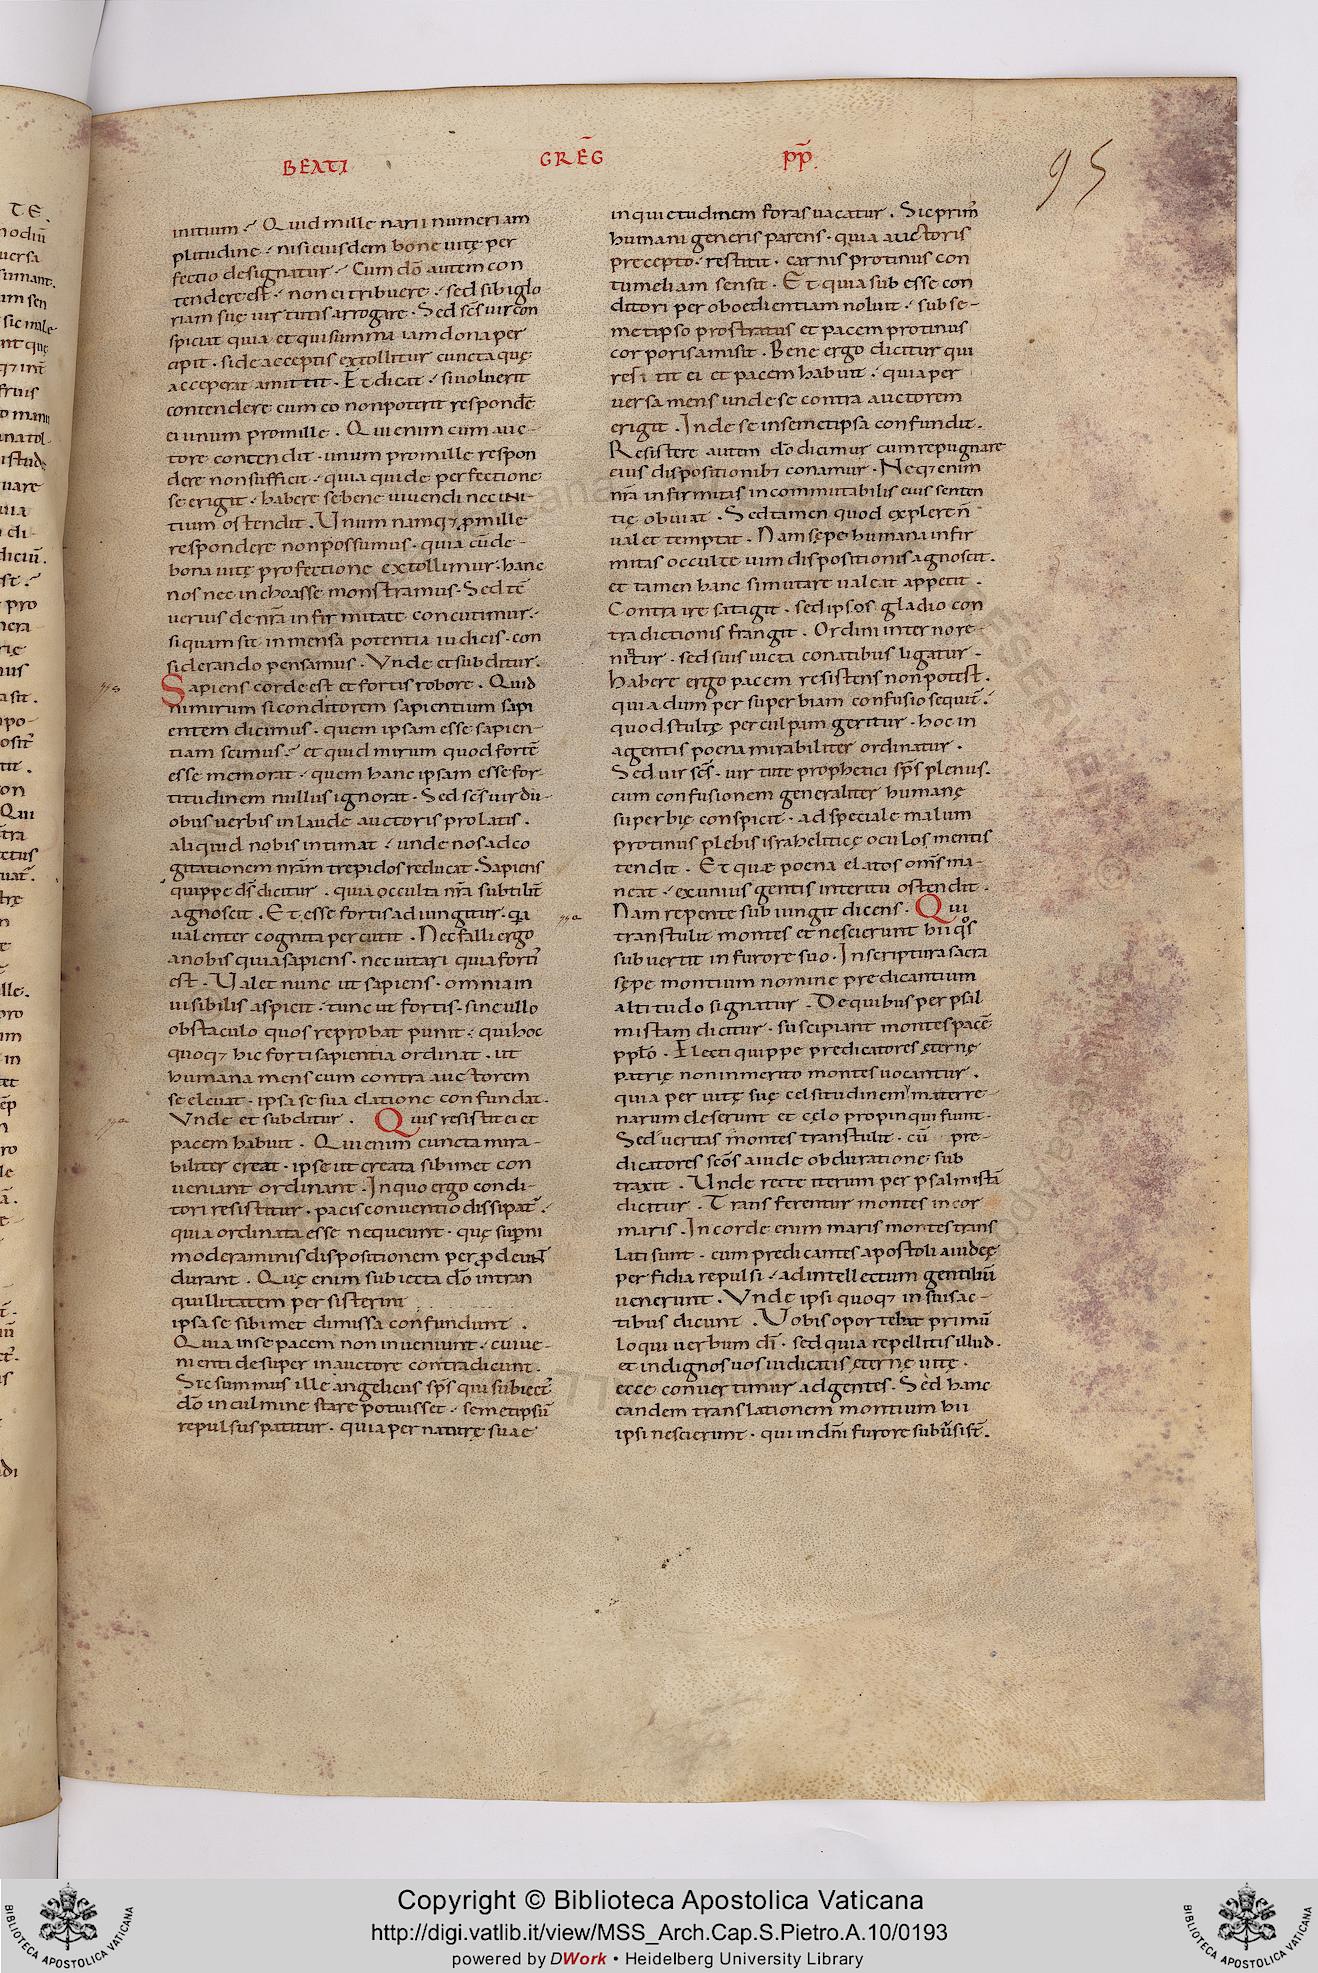 BEATI GREḠ PP̄.
95
initium? Quid mille narii numeri am
plitudine? nisi eiusdem bone uitę per
fectio designatur? Cum dō autem con
tendere est? non ei tribuere? sed sibi glo
riam suę uirtutis arrogare. Sed sc̄s uir con
spiciat quia et qui summa iam dona per
cipit. si de acceptis extollitur cuncta quę
acceperat amittit. Et dicat? si uoluerit
contendere cum eo non poterit respondē
ei unum pro mille. Qui enim cum auc-
tore contendit. unum pro mille respon
dere non sufficit? quia qui de perfectione
se erigit? habere se bene uiuendi nec ini-
tium ostendit. Unum namq; ꝓ mille
respondere non possumus. quia cū de-
bona uitę profectione extollimur. hanc
nos nec inchoasse monstramus. Sed tē
uerius de nr̄a infirmitate concutimur.
si quam sit inmensa potentia iudicis. con
siderando pensamus. Vnde et subditur.
Sapiens corde est et fortis robore. Quid
nimirum si conditorem sapientium sapi
entem dicimus. quem ipsam esse sapien-
tiam scimus? et quid mirum quod fortē
esse memorat. quem hanc ipsam esse for-
titudinem nullus ignorat. Sed sc̄s uir du-
obus uerbis in laude auctoris prolatis.
aliquid nobis intimat? unde nos ad co
gitationem nr̄am trepidos reducat. Sapiens
quippe ds̄ dicitur. quia occulta nr̄a subtilit̄
agnoscit. Et esse fortis adiungitur. qa
ualenter cognita percutit. Nec falli ergo
a nobis quia sapiens. nec uitari quia forti
est. Ualet nunc ut sapiens. omnia in
uisibilis aspicit. tunc ut fortis. sine ullo
obstaculo quos reprobat punit. qui hoc
quoq; hic forti sapientia ordinat. ut
humana mens cum contra auctorem
se eleuat. ipsa se sua elatione confundat.
Vnde et subditur. Quis resistit ei et
pacem habuit. Qui enim cuncta mira-
biliter creat. ipse ut creata sibimet con
ueniant ordinant. In quo ergo condi-
tori resistitur. pacis conuentio dissipat᷑.
quia ordinata esse nequeunt. quę sup̱ni
moderaminis dispositionem per
durant. Quę enim subiecta dō in tran
quillitatem persisterint
ipsa se sibimet dimissa confundunt.
Quia in se pacem non inueniunt. cui ue-
nienti desuper in auctore contradicunt.
Sic summus ille angelicus sp̄s qui subiect᷑
dō in culmine stare potuisset. semetipsū
repulsus patitur. quia per naturę suae
inquietudinem foras uacatur. Sic prim̄
humani generis parens. quia auctoris
precepto. restitit. carnis protinus con
tumeliam sensit. Et quia sub esse con
ditori per oboedientiam noluit. sub se-
metipso prostratus et pacem protinus
corporis amisit. Bene ergo dicitur qui
resi tit ei et pacem habuit? quia per
uersa mens unde se contra auctorem
erigit. Inde se in semetipsa confundit.
Resistere autem dō dicimur cum repugnare
eius dispositionib; conamur. Neq; enim
nr̄a infirmitas incommutabilis eius senten
tię obuiat. Sed tamen quod explere n̄
ualet temptat. Nam sępe humana infir
mitas occulte uim dispositionis agnoscit.
et tamen hanc si mutare ualeat appetit.
Contra ire satagit. sed ipsos gladio con
tradictionis frangit. Ordini interno re-
nititur. sed suis uicta conatibus ligatur.
Habere ergo pacem resistens non potest.
quia dum per superbiam confusio sequit᷑.
quod stultę per culpam geritur. hoc in
agentis poena mirabiliter ordinatur.
Sed uir sc̄s. uirtute prophetici sp̄s plenus.
cum confusionem generaliter humanę
superbię conspicit. ad speciale malum
protinus plebis israheliticę oculos mentis
tendit. Et quæ poena elatos om̄s ma-
neat? ex unius gentis interitu ostendit.
Nam repente subiungit dicens. Qui
transtulit montes et nescierunt hii qos
subuertit in furore suo. In scriptura sacra
sępe montium nomine predicantium
altitudo signatur. De quibus per psal
mistam dicitur. suscipiant montes pacē
pplō. Electi quippe predicatores ęternę
patrię non inmerito montes uocantur.
quia per uitę suę celsitudinem ima terre-
narum deserunt et cęlo propinqui fiunt.
Sed ueritas montes transtulit. cū pre-
dicatores scōs a iude obduratione sub
traxit. Unde recte iterum per psalmistā
dicitur. Transferentur montes in cor
maris. In corde enim maris montes trans
lati sunt. cum predicantes apostoli a iudeę
perfidia repulsi? ad intellectum gentiliū
uenerunt. Vnde ipsi quoq; in suis ac-
tibus dicunt. Uobis oportebat primū
loqui uerbum dī. sed quia repellitis illud.
et indignos uos iudicatis ęternę uite.
ecce conuertimur ad gentes. Sed hanc
eandem translationem montium hii
ipsi nescierunt. qui in dn̄i furore subūsi st̄.
Copyright © Biblioteca Apostolica Vaticana
http://digi.vatlib.it/view/MSS_Arch.Cap.S.Pietro.A.10/0193
powered by DWork • Heidelberg University Library
BIBLIOTECA APOSTOLICA VATICANA
BIBLIOTECA APOSTOLICA VATICANA